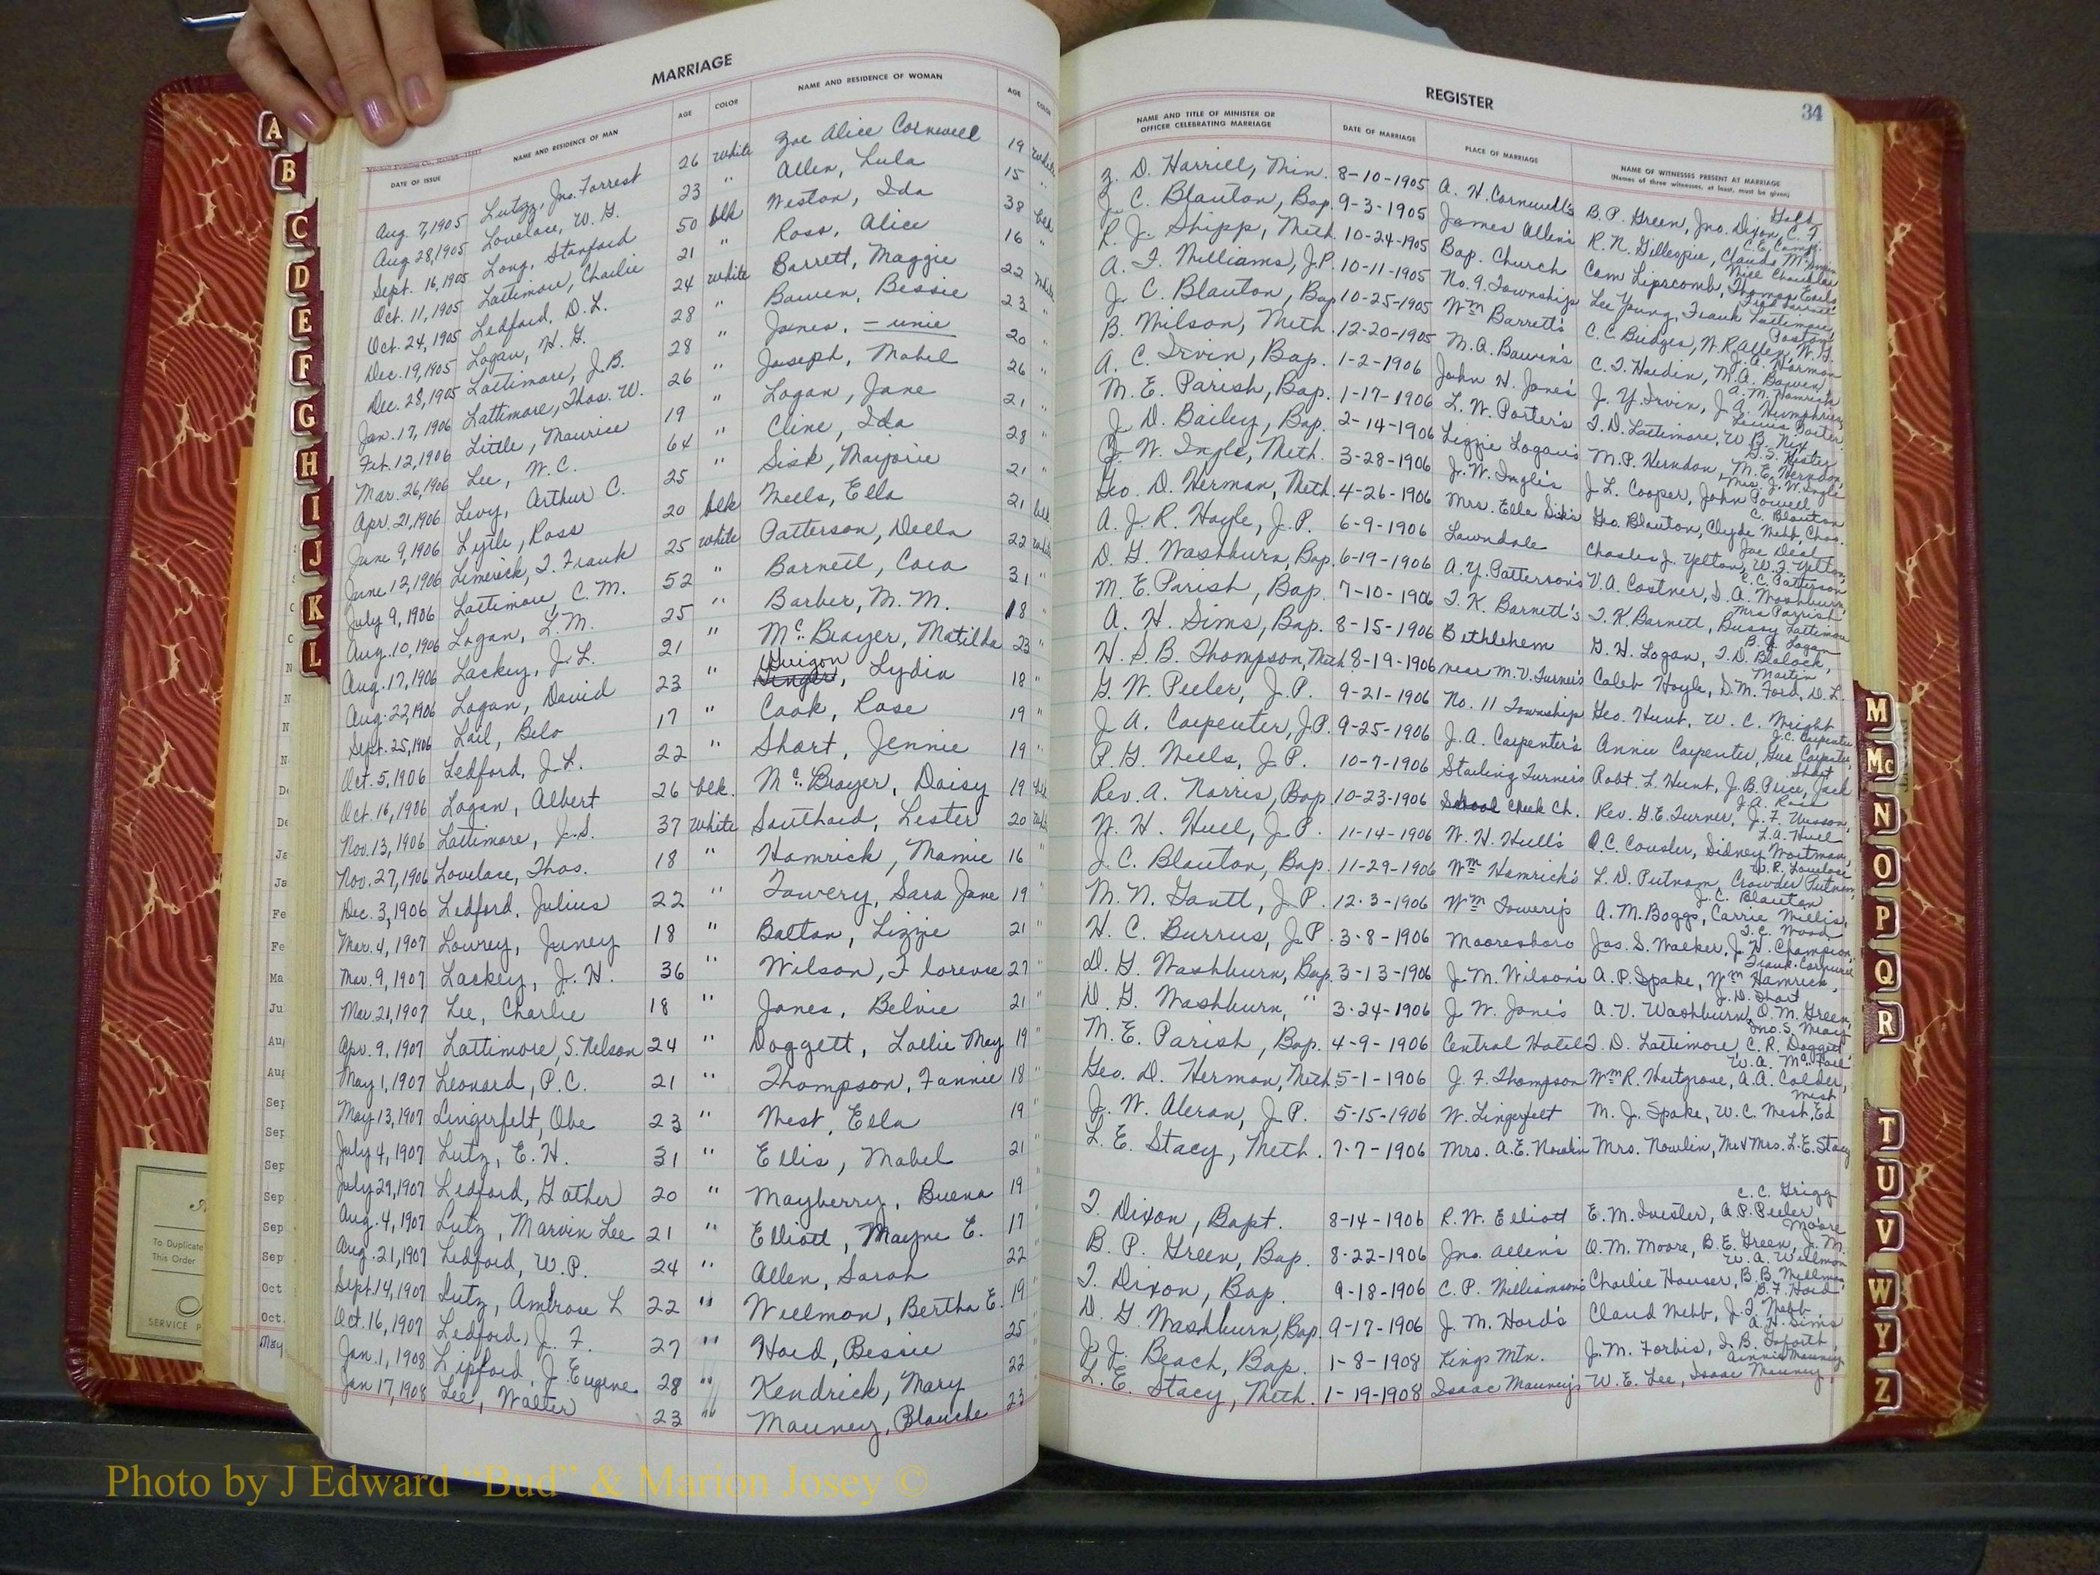 MARRIAGE
DATE OF ISSUE NAME AND RESIDENCE OF MAN AGE COLOR NAME AND RESIDENCE OF WOMAN AGE COLOR
Aug. 7, 1905 Lutzz, Jno. Forrest 26 white Zoe Alice Cornwell 19 white
Aug 28, 1905 Lovelace, W. G. 23 " Allen, Lula 15 "
Sept. 16, 1905 Long, Stanford 50 blk Weston, Ida 38 blk
Oct. 11, 1905 Lattimore, Charlie 21 " Ross, Alice 16 "
Oct. 24, 1905 Ledford, D. L. 24 white Barrett, Maggie 22 white
Dec. 19, 1905 Logan, H. G. 28 " Bowen, Bessie 23 "
Dec. 28, 1905 Lattimore, J. B. 28 " Jones, — unie 20 "
Jan. 17, 1906 Lattimore, Thos. W. 26 " Joseph, Mabel 26 "
Feb. 12, 1906 Little, Maurice 19 " Logan, Jane 21 "
Mar. 26, 1906 Lee, W. C. 64 " Cline, Ida 28 "
Apr. 21, 1906 Levy, Arthur C. 25 " Sisk, Marjorie 21 "
June 9, 1906 Lytle, Ross 20 blk Wells, Ella 21 blk
June 12, 1906 Limerick, T. Frank 25 white Patterson, Della 22 white
July 9, 1906 Lattimore, C. M. 52 " Barnett, Cora 31 "
Aug. 10, 1906 Logan, L. M. 25 " Barber, M. M. 18 "
Aug. 17, 1906 Lackey, J. L. 21 " Mc Brayer, Matilda 23 "
Aug. 22, 1906 Logan, David 23 " Guigon, Lydia 18 "
Sept. 25, 1906 Lail, Belo 17 " Cook, Rose 19 "
Oct. 5, 1906 Ledford, J. L. 22 " Short, Jennie 19 "
Oct. 16, 1906 Logan, Albert 26 blk. Mc Brayer, Daisy 19 blk
Nov. 13, 1906 Lattimore, J. S. 37 white Southard, Lester 20 wh
Nov. 27, 1906 Lovelace, Thos. 18 " Hamrick, Mamie 16 "
Dec. 3, 1906 Ledford, Julius 22 " Towery, Sara Jane 19 "
Mar. 4, 1907 Lowrey, Juney 18 " Batton, Lizzie 21 "
Mar. 9, 1907 Lackey, J. H. 36 " Wilson, Florence 27 "
Mar. 21, 1907 Lee, Charlie 18 " Jones, Belvie 21 "
Apr. 9, 1907 Lattimore, S. Nelson 24 " Doggett, Lollie May 19 "
May 1, 1907 Leonard, P. C. 21 " Thompson, Fannie 18 "
May 13, 1907 Lingerfelt, Obe 23 " West, Ella 19 "
July 4, 1907 Lutz, E. H. 31 " Ellis, Mabel 21 "
July 29, 1907 Ledford, Gather 20 " Mayberry, Buena 19
Aug. 4, 1907 Lutz, Marvin Lee 21 " Elliott, Mayme E. 17
Aug. 21, 1907 Ledford, W. P. 24 " Allen, Sarah 22
Sept. 14, 1907 Lutz, Ambrose L 22 " Wellmon, Bertha E. 19
Oct. 16, 1907 Ledford, J. F. 27 " Hord, Bessie 25
Jan. 1, 1908 Lipford, J. Eugene 28 " Kendrick, Mary 22
Jan 17, 1908 Lee, Walter 23 " Mauney, Blanche 23
REGISTER
34
NAME AND TITLE OF MINISTER OR OFFICER CELEBRATING MARRIAGE DATE OF MARRIAGE PLACE OF MARRIAGE NAME OF WITNESSES PRESENT AT MARRIAGE
(Names of three witnesses, at least, must be given)
Z. D. Harrill, Min. 8-10-1905 A. H. Cornwell's B. P. Green, Jno. Dixon, C. T.
J. C. Blanton, Bap. 9-3-1905 James Allen's R. N. Gillespie, Claude
R. J. Shipp, Meth. 10-24-1905 Bap. Church Cam Lipscomb, Thomas Earls
A. F. Williams, J.P. 10-11-1905 No. 9. Township Lee Young, Frank Lattimore,
J. C. Blanton, Bap 10-25-1905 Wm Barrett's C. C. Bridges, W. R. Allen, W. G.
B. Wilson, Meth. 12-20-1905 M. A. Bowen's C. T. Harden, M. A. Bowen
A. C. Irvin, Bap. 1-2-1906 John H. Jones J. Y. Irvin, J. A. Humphries
M. E. Parish, Bap. 1-17-1906 L. W. Porter's T. D. Lattimore, W. B. Nix
J. D. Bailey, Bap. 2-14-1906 Lizzie Logan's M. P. Herndon, M. E. Herndon,
J. W. Ingle, Meth. 3-28-1906 J. W. Ingle's J. L. Cooper, John Powell
Geo. D. Herman, Meth. 4-26-1906 Mrs. Ella Sisk's Geo. Blanton, Clyde Webb, Chas.
A. J. R. Hoyle, J.P. 6-9-1906 Lawndale Charles J. Yelton, W. F. Yelton,
D. G. Washburn, Bap. 6-19-1906 A. Y. Patterson's V. A. Costner, D. A. Washburn,
M. E. Parish, Bap. 7-10-1906 T. K. Barnett's T. K Barnett, Bussy Lattimore
A. H. Sims, Bap. 8-15-1906 Bethlehem G. H. Logan, T. D. Blalock,
H. S. B. Thompson, Meth. 8-19-1906 near M. V. Turner's Caleb Hoyle, D. M. Ford, D. L.
G. W. Peeler, J. P. 9-21-1906 No. 11 Township Geo. Hunt, W. C. Wright
J. A. Carpenter, J.P. 9-25-1906 J. A. Carpenter's Annie Carpenter, Gus Carpenter,
P. G. Wells, J. P. 10-7-1906 Starling Turner's Robt. L. Hunt, J. B. Price, Jack
Rev. A. Norris, Bap 10-23-1906 Creek Ch. Rev. G. E. Turner, J. F. Wesson,
W. H. Hull, J. P. 11-14-1906 W. H. Hull's A. C. Cousler, Sidney Wortman,
J. C. Blanton, Bap. 11-29-1906 Wm Hamrick's L. D. Putnam, Crowder Putnam,
M. N. Gantt, J. P. 12-3-1906 Wm Towery's A. M. Boggs, Carrie Willis,
H. C. Burrus, J. P. 3-8-1906 Mooresboro Jas. S. Walker, J. H. Champion,
D. G. Washburn, Bap. 3-13-1906 J. M. Wilson's A. P. Spake, Wm Hamrick,
D. G. Washburn, " 3-24-1906 J. W. Jones A. V. Washburn, O. M. Green,
M. E. Parish, Bap. 4-9-1906 Central Hotel T. D. Lattimore, C. R. Doggett,
Geo. D. Herman, Meth. 5-1-1906 J. F. Thompson Wm R. Hartgrove, A. A. Calder,
J. W. Aleran, J. P. 5-15-1906 W. Lingerfelt M. J. Spake, W. C. West, Ed
L. E. Stacy, Meth. 7-7-1906 Mrs. A. E. Nowlin Mrs. Nowlin, Mr & Mrs. L. E. Stacy
C. C. Grigg
T. Dixon, Bapt. 8-14-1906 R. W. Elliott E. M. Ivester, A. P. Peeler,
B. P. Green, Bap. 8-22-1906 Jno. Allen's O. M. Moore, B. E. Green, J. M.
T. Dixon, Bap. 9-18-1906 C. P. Williamson's Charlie Houser, B. B. Wellmon,
D. G. Washburn, Bap. 9-17-1906 J. M. Hord's Claud Webb, J. L. Webb,
J. J. Beach, Bap. 1-8-1908 Kings Mtn. J. M. Forbis, I. B. Goforth,
L. E. Stacy, Meth. 1-19-1908 Isaac Mauney's W. E. Lee, Isaac Mauney,
A
B
C
D
E
F
G
H
I
J
K
L
M
Mc
N
O
P
Q
R
T
U
V
W
Y
Z
To Duplicate
This Order
Photo by J Edward “Bud” & Marion Josey ©